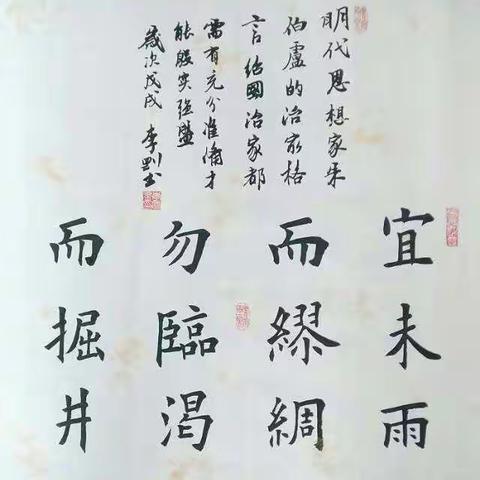 明代思想家朱
伯盧的治家格
言给國治家都
需有充分准備才
能殷实强盛
歲次戊戌 李
宜未雨
而繆綢
勿臨渴
而掘井